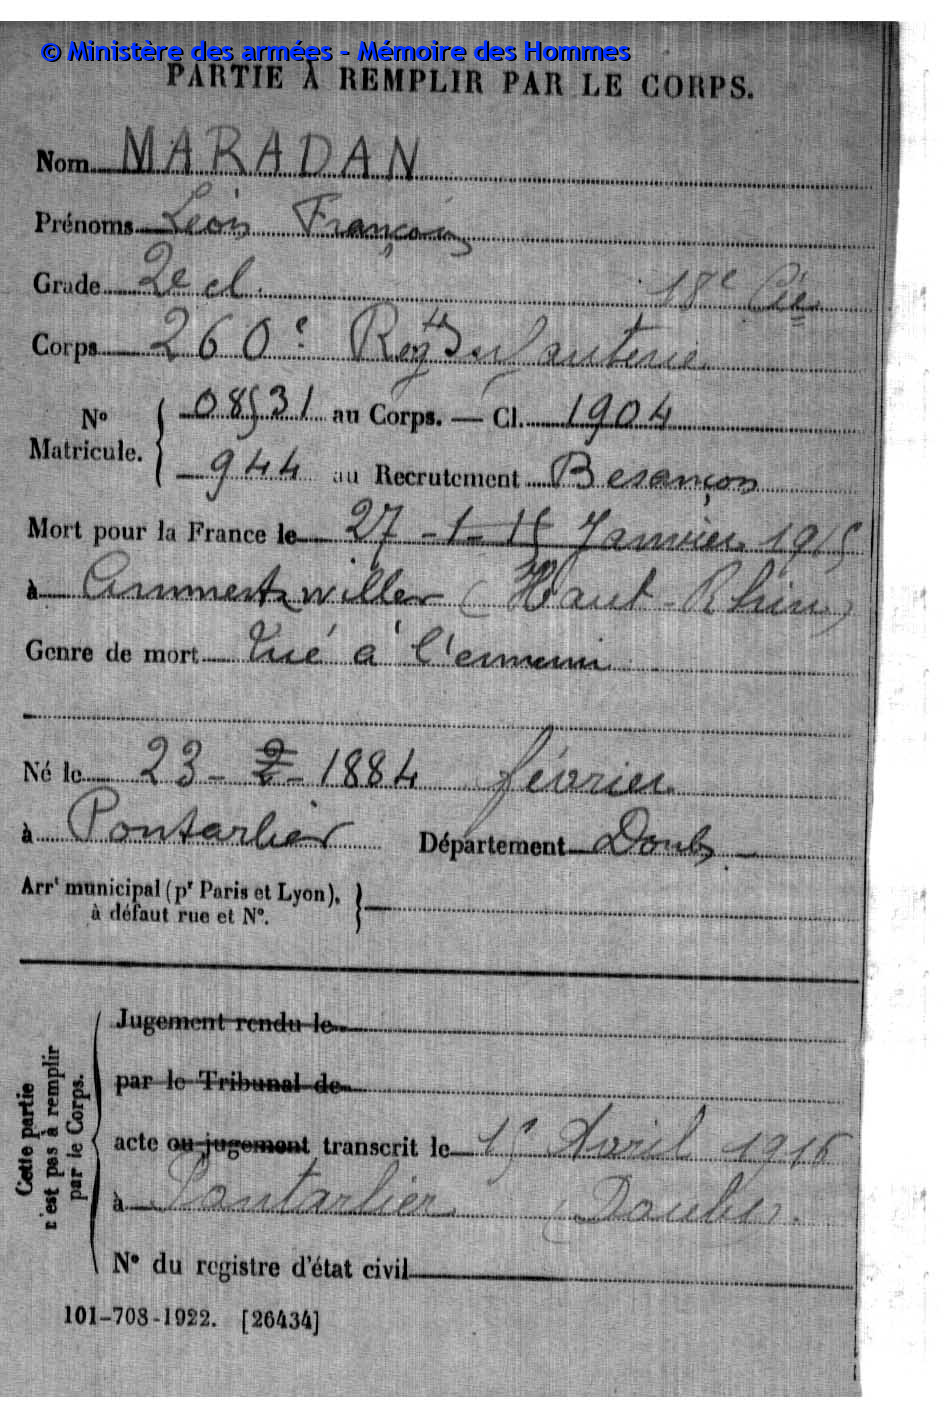 © Ministère des armées - Mémoire des Hommes
PARTIE À REMPLIR PAR LE CORPS.
Nom MARADAN
Prénoms Léon François
Grade 2e cl. 18e Cie
Corps 260e Regt Infanterie
N° Matricule. { 08531 au Corps. — Cl. 1904
944 au Recrutement Besançon
Mort pour la France le 27 -1- 15 Janvier 1915
à Ammertzwiller (Haut-Rhin)
Genre de mort Tué à l'ennemi
Né le 23 - 2 - 1884 février
à Pontarlier Département Doubs
Arrt municipal (pr Paris et Lyon),
à défaut rue et N°.
Cette partie
n'est pas à remplir
par le Corps.
Jugement rendu le
par le Tribunal de
acte ou jugement transcrit le Avril 1916
à Pontarlier (Doubs).
N° du registre d'état civil
101-708-1922. [26434]